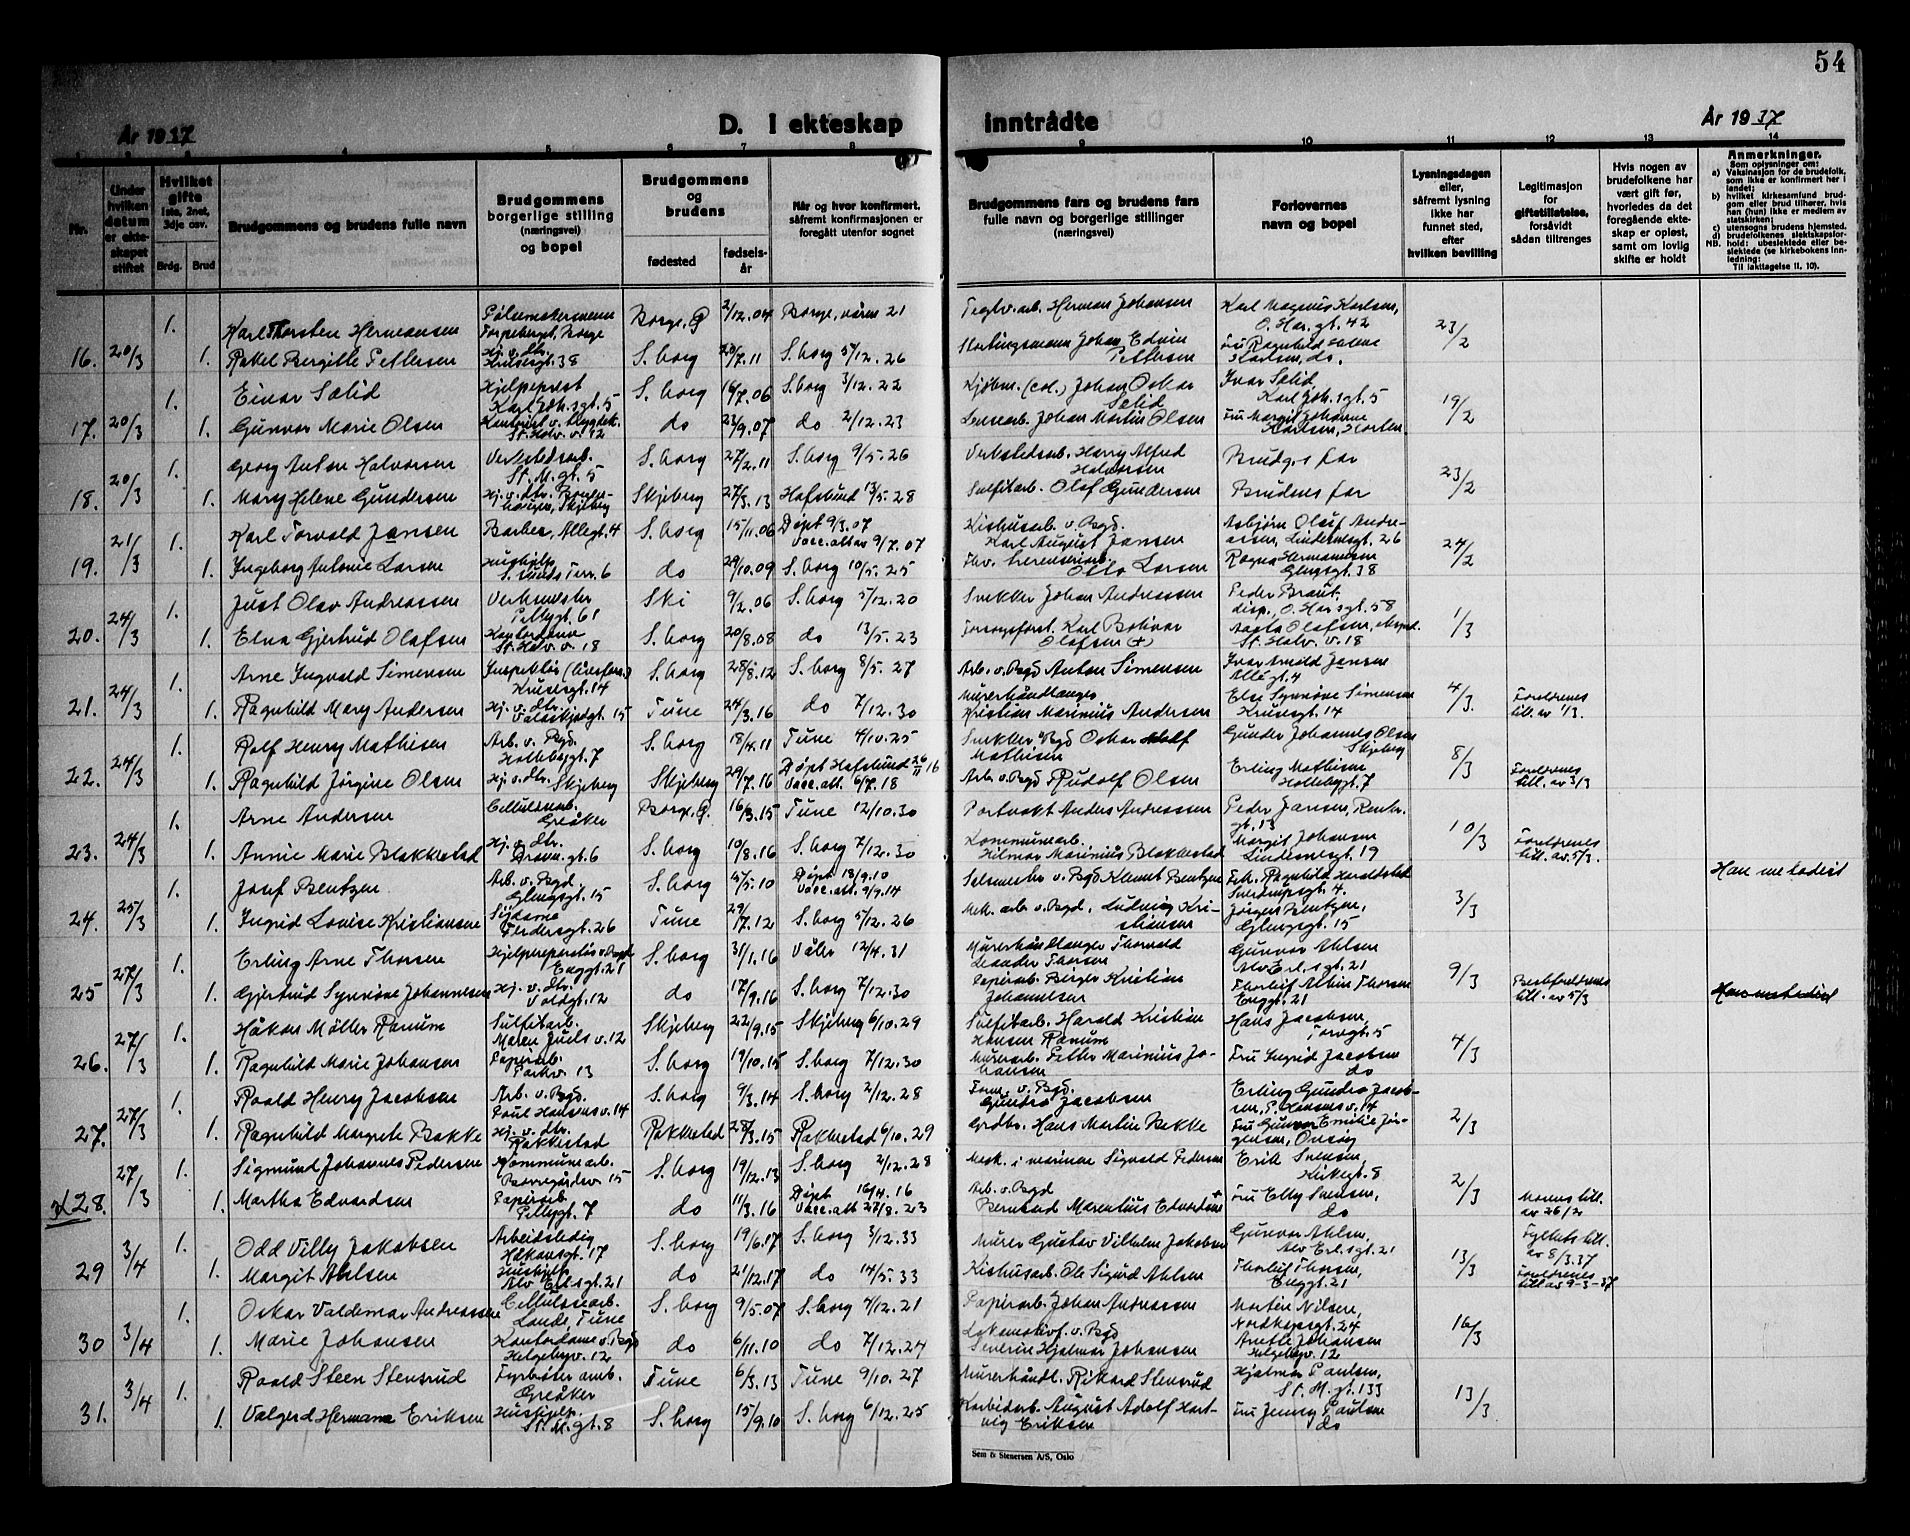 54
År 1937
D. I ekteskap inntrådte
År 1937
1 2 3 4 5 6 7 8 9 10 11 12 13 14
Nr.
Under hvilken datum er ekteskapet stiftet
Hvilket gifte 1ste, 2net, 3dje osv.
Brdg. Brud
Brudgommens og brudens fulle navn
Brudgommens borgerlige stilling (næringsvei) og bopel
Brudgommens og brudens
fødested
fødselsår
Når og hvor konfirmert, såfremt konfirmasjonen er foregått utenfor sognet
Brudgommens fars og brudens fars fulle navn og borgerlige stillinger (næringsvei)
Forlovernes navn og bopel
Lysningsdagen eller, såfremt lysning ikke har funnet sted, efter hvilken bevilling
Legitimasjon for giftetillatelse, forsåvidt sådan tiltrenges
Hvis nogen av brudefolkene har vært gift før, hvorledes da det foregående ekteskap er opløst, samt om lovlig skifte er holdt
Anmerkninger.
Som oplysninger om:
a) Vaksinasjon for de brudefolk, som ikke er konfirmert her i landet;
b) hvilket kirkesamfund brudgom eller brud tilhører, hvis han (hun) ikke er medlem av statskirken;
c) utensogns brudens hjemsted.
d) brudefolkenes slektskapsforhold: ubeslektede eller beslektede (se kirkebokens innledning:
NB. Til iakttagelse II. 10).
1. Karl Thorsten Hermansen Pølsemakersvenn Torpeberget, Borge Borge, Ø 2/12.04 Borge, våren 21 Teglv.arb. Herman Johansen Karl Magnus Karlsen, O. Har. gt. 42
16. 20/3 1. Rakel Bergitte Pettersen Hj. v. dtr. Krusesgt. 38 S.borg 20/7.11 S.borg 5/12.26 Stortingsmann Johan Edvin Pettersen Fru Ragnhild Karlsen, do. 23/2
1. Einar Sælid Hjelpeprest Karl Joh.s gt. 5 S.borg 16/7.06 S.borg 3/12.22 Kjøbm. (col.) Johan Oskar Sælid Ivar Sælid, Karl Joh.s gt. 5
17. 20/3 1. Gunvor Marie Olsen Kontorist v. St. Halv. v. 12 do 23/9.07 do 2/12.23 Lensearb. Johan Martin Olsen Fru Margit Johanne Karlsen, Horten. 19/2
1. Georg Anton Halvorsen Verkstedsarb. St. M. gt. 5 S.borg 27/2.11 S.borg 9/5.26 Verkstedsarb. Harry Alfred Halvorsen Brudg.s far
18. 20/3 1. Mary Helene Gundersen Hj. v. dtr. Skjeberg Skjeberg 27/3.13 Hafslund 13/5.28 Sulfitarb. Olaf Gundersen Brudens far 23/2
1. Karl Torvald Jansen Barber, Allegt. 4 S.borg 15/11.06 Døpt 9/3.07 Vacc.att. av 9/7.07 Kishusarb. v. Bgd. Karl August Jansen Asbjørn Olaf Andreassen, Lindemsgt. 26
19. 21/3 1. Ingeborg Antonie Larsen Hushjelp Terr. 6 do 29/10.09 S.borg 10/5.25 Otto Larsen Ragna Hermansen Glengsgt. 38 24/2
1. Just Olav Andreassen Verkmester Pellygt. 61 Ski 9/2.06 S.borg 5/12.20 Snekker Johan Andreassen Peder Braut, disp., O. Har.s gt. 58
20. 24/3 1. Elna Gjertrud Olafsen Kontordame St. Halv. v. 18 S.borg 20/8.08 do 13/5.23 Karl Bolivar Olafsen (+) Aasta Olafsen, St. Halv. v. 18 1/3
1. Arne Ingvald Simensen Krusesgt. 14 S.borg 28/8.12 S.borg 8/5.27 Arb. v. Bgd Anton Simensen Ivar Arnold Jansen Allegt. 4
21. 24/3 1. Ragnhild Mary Andersen Hj. v. dtr. Valaskjoldgt. 15 Tune 24/3.16 do 7/12.30 Murerhåndlanger Kristian Marinius Andersen Else Synnøve Simensen Krusesgt. 14 4/3. Foreldrenes till. av 1/3.
1. Rolf Henry Mathisen Arb. v. Bgd. Hollebygt. 7 S.borg 18/4.11 Tune 4/10.25 Snekker v Bgd Oskar Adolf Mathisen Gunder Johannes Olsen Skjeberg
22. 24/3 1. Ragnhild Jørgine Olsen Hj. v. dtr. Skjeberg Skjeberg 29/7.16 Døpt Hafslund 26/11 16 Vacc. att. 6/7.18 Arb. v. Bgd Rudolf Olsen Erling Mathisen Hollebygt. 7 8/3 Foreldrenes till. av 3/3
1. Arne Andersen Cellulosearb. Greåker Borge, Ø. 16/3.15 Tune 12/10.30 Portvakt Anders Andreassen Peder Jansen, gt. 13
23. 24/3 1. Annie Marie Blakkestad Hj. v. dtr. Dramm. gt. 6 S.borg 10/8.16 S.borg 7/12.30 Kommunearb. Hilmar Marinius Blakkestad Margit Johansen Lindemsgt. 19 10/3 Foreldrenes till. av 5/3.
1. Josef Bentzen Arb. v. Bgd. Glengsgt. 15 S.borg 15/5.10 Døpt 18/9.10 Vacc. att. 9/9.14 v. Bgd Klaumt Bentzen Frk. Ragnhild gt. 4. Han metodist
24. 25/3 1. Ingrid Lovise Kristiansen Sydame Ferdersgt. 26 Tune 29/7.12 S.borg 5/12.26 Mek. arb v. Bgd. Ludvig Kristiansen Jørgen Bentzen, Glengsgt. 15 3/3
1. Erling Arne Thorsen Hjelpereparatør v. Bgd Enggt. 21 S.borg 31/1.16 Våler 12/4.31 Murerhåndlanger Thorvald Leander Thorsen Gunvor Ahlsen Alv Erl.s gt. 21
25 27/3 1. Gjertrud Synnøve Johannesen Hj. v. dtr. Voldgt. 12 do 17/9.16 S.borg 7/12.30 Papirarb. Birger Kristian Johannesen Thorleif Albin Thorsen Enggt. 21 9/3 Besteforeldrenes till. av 5/3 Han metodist
1. Håkon Møller Ranum Sulfitarb. Maren Juels v. 12 Skjeberg 22/9.15 Skjeberg 6/10.29 Sulfitarb. Harald Kristian Hansen Ranum Hans Jacobsen, Torvgt. 5
26. 27/3 1. Ragnhild Marie Johansen Papirarb. Parkv. 13 S.borg 19/10.15 S.borg 7/12.30 Murerarb. Petter Marinius Johansen Fru Ingrid Jacobsen do 4/3
1. Roald Henry Jacobsen Arb. v. Bgd. Poul Hansens v. 14 S.borg 9/3.14 S.borg 2/12.28 Form. v. Bgd. Gundro Jacobsen Erling Gundro Jacobsen, P. Hansens v. 14
27. 27/3 1. Ragnhild Margrete Bakke Hj. v. dtr. Rakkestad Rakkestad 28/3.15 Rakkestad 6/10.29 Grdbr. Hans Martin Bakke Fru Gunvor Emilie Jørgensen, Onsøy 2/3
1. Sigmund Johannes Pedersen Kommunearb. Borregårdsv. 15 S.borg 19/12.13 S.borg 2/12.28 Mask. i marinen Sigvald Pedersen Erik Svensen, Kirkegt. 8
28. 27/3 1. Martha Edvardsen Papirarb. Pellygt. 7 do 11/3.16 Døpt 16/4.16 Vacc. att 27/8.23 Arb. v. Bgd Bernhard Marentius Edvardsen + Fru Elly Svensen, do 2/3 Morens till. av 26/2
1. Odd Villy Jakobsen Arbeidsledig Håkonsgt. 17 S.borg 19/6.17 S.borg 3/12.33 Murer Gustav Vilhelm Jakobsen Gunvor Ahlsen, Alv Erl.s gt. 21 Fylkets till. av 8/3.37
29 3/4 1. Margit Ahlsen Hushjelp Alv Erl.s gt. 21 do 21/12.17 do 14/5.33 Kishusarb. Ole Sigurd Ahlsen Thorleif Thorsen, Enggt. 21 13/3 Foreldrenes till av 9-3-37
1. Oskar Valdemar Andreassen Cellulosearb. Lande, Tune S.borg 9/5.07 S.borg 4/12.21 Papirarb. Johan Andreassen Morten Nilsen, Nordkapsgt. 24
30 3/4 1. Marie Johansen Kontordame v. Bgd Helgebyv. 12 do 6/11.10 do 7/12.24 Lokomotivf. v. Bgd Severin Hjalmar Johansen Anette Johansen Helgebyv. 12 16/3
1. Roald Steen Stensrud Fyrbøter amb. Greåker Tune 6/3.13 Tune 9/10.27 Murerhåndl. Rikard Stensrud Hjalmar Paulsen, St. M. gt. 133
31. 3/4 1. Valgerd Hermane Eriksen Hushjelp St. M. gt. 8 S.borg 15/9.10 S.borg 6/12.25 Karbidarb. August Adolf Hartvig Eriksen Fru Jenny Paulsen do 13/3
Sem & Stenersen A/S, Oslo